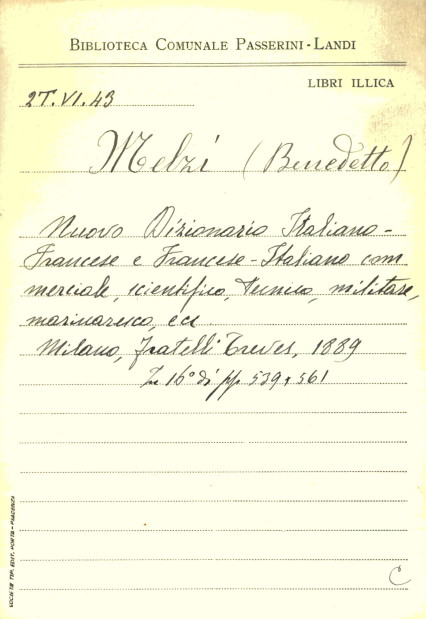 BIBLIOTECA COMUNALE PASSERINI-LANDI
LIBRI ILLICA
2T.VI.43
Melzi (Benedetto)
Nuovo Dizionario Italiano-
Francese e Francese-Italiano com
merciale, scientifico, tecnico, militare,
marinaresco, ecc
Milano, Fratelli Treves, 1889
In 16° di pp 539, 561
SOCIETÀ TIP. EDIT. PORTA - PIACENZA
C